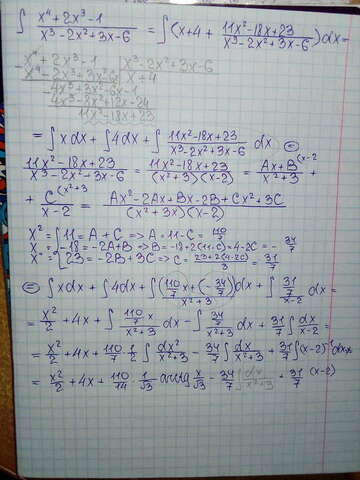 ∫ x⁴+2x³-1 / x³-2x²+3x-6 = ∫(x+4+ 11x²-18x+23 / x³-2x²+3x-6)dx =
x⁴+2x³-1 | x³-2x²+3x-6
x⁴-2x³+3x²-6x | x+4
4x³-3x²+6x-1
4x³-8x²+12x-24
11x²-18x+23
= ∫xdx + ∫4dx + ∫ 11x²-18x+23 / x³-2x²+3x-6 dx =
11x²-18x+23 / x³-2x²+3x-6 = 11x²-18x+23 / (x²+3)(x-2) = Ax+B (x-2 / x²+3 +
+ C (x²+3 / x-2 = Ax²-2Ax+Bx-2B+Cx²+3C / (x²+3x)(x-2)
x² = { 11 = A+C => A=11-C = 110/7
x = { -18 = -2A+B => B=-18+2(11-C)=4-2C = -34/7
x⁰ = { 23 = -2B+3C => C = 23+2(4-2C) / 3 = 31/7
= ∫xdx + ∫4dx + ∫(110/7 x + (-34/7) / x²+3)dx + ∫ 31/7 / x-2 dx =
= x²/2 + 4x + ∫ 110/7 x / x²+3 dx - ∫ 34/7 / x²+3 dx + 31/7 ∫ dx / x-2 =
= x²/2 + 4x + 110/7 · 1/2 ∫ dx² / x²+3 - 34/7 ∫ dx / x²+3 + 31/7 ∫(x-2)⁻¹dx=
= x²/2 + 4x + 110/14 · 1/√3 arctg x/√3 - 34/7 ∫ dx / x²+3 + 31/7 (x-2)